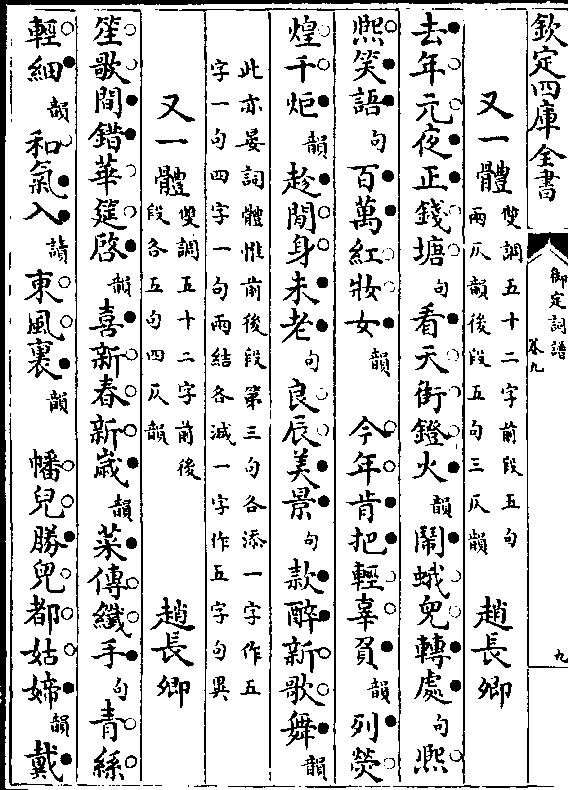 欽定四庫全書
御定詞譜
卷九
九
又一體 雙調五十二字前段五句
兩仄韻後段五句三仄韻 趙長卿
去年元夜正錢塘句看天街鐙火韻鬧蛾兒轉處句熙
熙笑語句百萬紅妝女韻 今年肯把輕辜負韻列熒
煌千炬韻趁閒身未老句良辰美景句款醉新歌舞韻
此亦晏詞體惟前後段第三句各添一字作五
字一句四字一句兩結各減一字作五字句異
又一體 雙調五十二字前後
段各五句四仄韻 趙長卿
笙歌間錯華筵啟韻喜新春新歲韻菜傳纖手句青絲
輕細韻和氣入讀東風裏韻 幡兒勝兒都姑媂韻戴